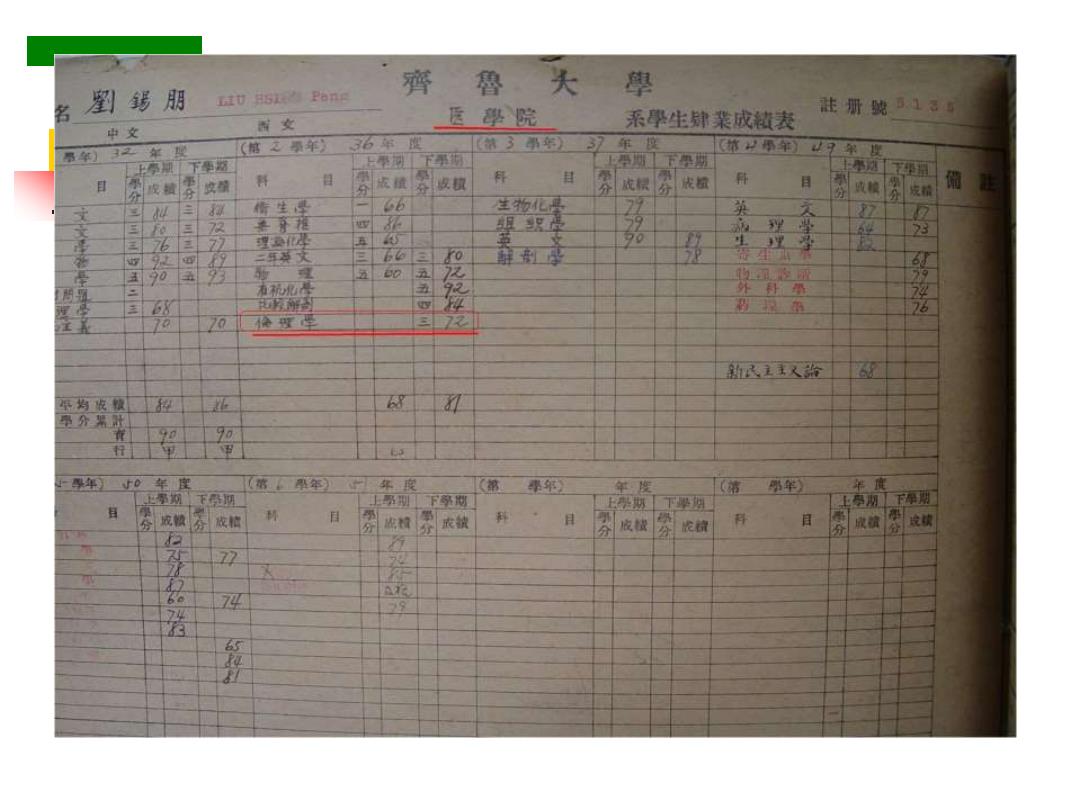 齊 魯 大 學
名 劉 錫 朋 LIU Peng
中文 西文
医學院 系學生肄業成績表 註册號 5135
學年) 32 年度 (第 2 學年) 36 年度 (第 3 學年) 37 年度 (第 4 學年) 49 年度
上學期 下學期 上學期 下學期 上學期 下學期 上學期 下學期
目 學分 成績 學分 成績 科 目 學分 成績 學分 成績 科 目 學分 成績 學分 成績 科 目 學分 成績 學分 成績 備 註
文 三 84 三 84 衛生學 一 66 生物化學 79 英 文 87 87
文 三 80 三 72 四 86 組織學 79 病理學 64 73
學 三 76 三 77 五 65 英 文 90 89 生理學 82
四 92 四 89 二年英文 三 66 三 80 解剖學 78 寄生虫學 68
學 五 90 五 93 物 理 五 60 五 72 物理診斷 79
問題 二 有机化學 五 92 外科學 74
理學 三 68 比較解剖 四 84 76
主義 70 70 倫理學 三 72
新民主主义論 68
平均成績 84 86 68 81
學分累計
育 90 90
行 甲 甲
學年) 50 年度 (第 6 學年) 51 年度 (第 學年) 年度 (第 學年) 年度
上學期 下學期 上學期 下學期 上學期 下學期 上學期 下學期
目 學分 成績 學分 成績 科 目 學分 成績 學分 成績 科 目 學分 成績 學分 成績 科 目 學分 成績 學分 成績
82 89
學 75 77 74
78 85
學 87
60 74 79
74
83
65
84
81